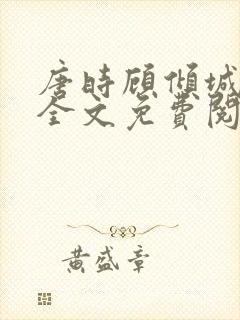 唐時顧傾城
全文免費閱
黃盛章